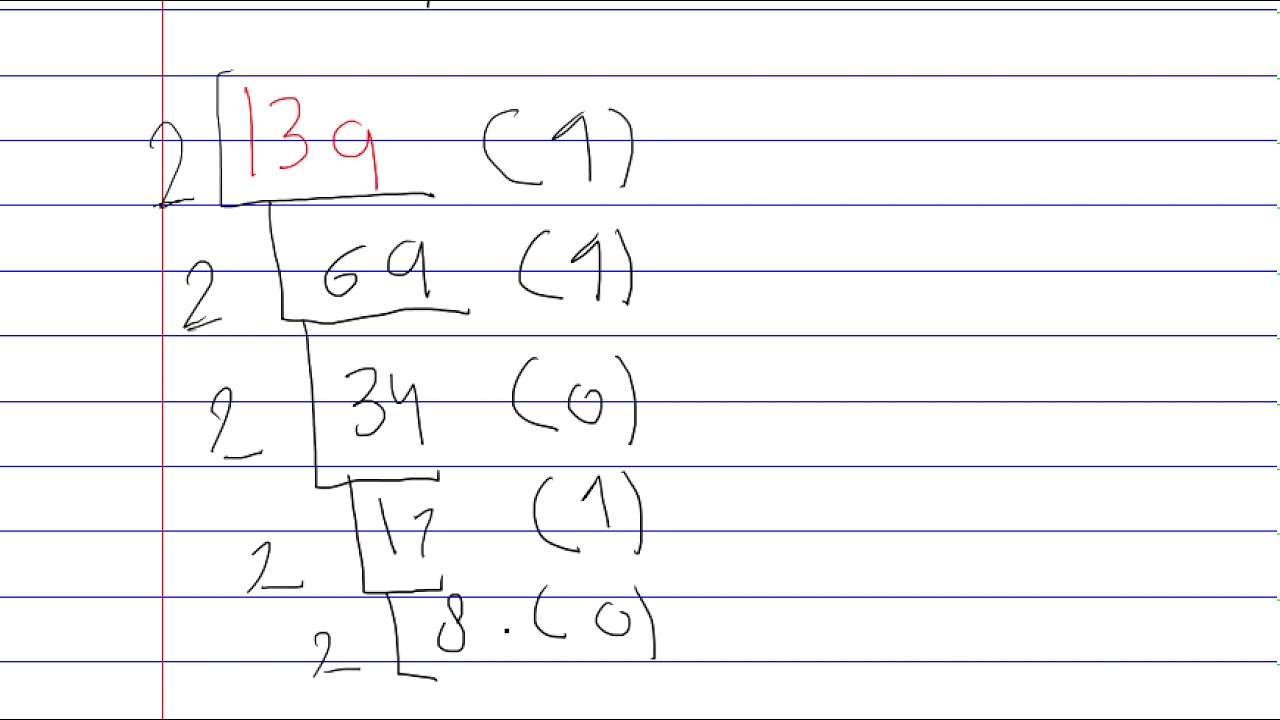 2 139 (1)
2 69 (1)
2 34 (0)
2 17 (1)
2 8 . (0)